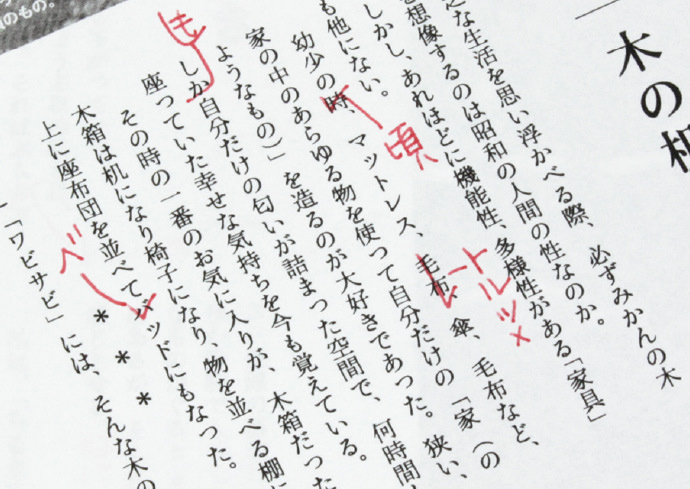 のもの。
木の
な生活を思い浮かべる際、必ずみかんの木
を想像するのは昭和の人間の性なのか。
しかし、あれほどに機能性、多様性がある「家具」
も他にない。
幼少の時、マットレス、毛布、傘、毛布など、
家の中のあらゆる物を使って自分だけの「家（の
ようなもの）」を造るのが大好きであった。狭い、
しか自分だけの匂いが詰まった空間で、何時間
座っていた幸せな気持ちを今も覚えている。
その時の一番のお気に入りが、木箱だった
木箱は机になり椅子になり、物を並べる棚に
上に座布団を並べてバッドにもなった。
＊＊＊
「ワビサビ」には、そんな木の
トルツメ
頃
も
ベ